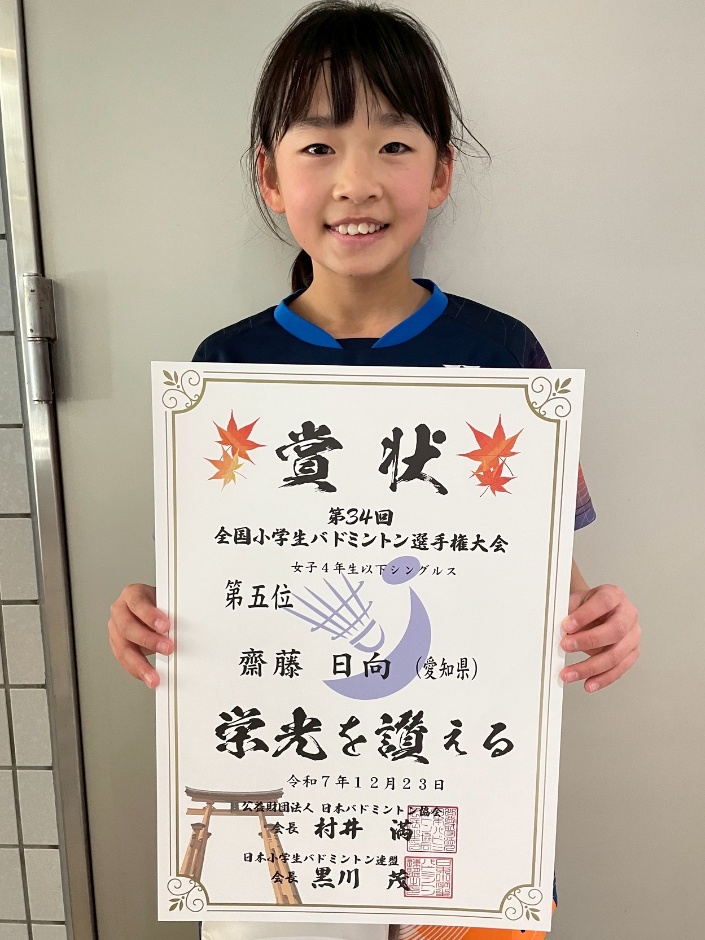 賞状
第34回
全国小学生バドミントン選手権大会
女子4年生以下シングルス
第五位
齋藤 日向 (愛知県)
栄光を讃える
令和7年12月23日
公益財団法人 日本バドミントン協会
会長 村井 満
日本小学生バドミントン連盟
会長 黒川 茂